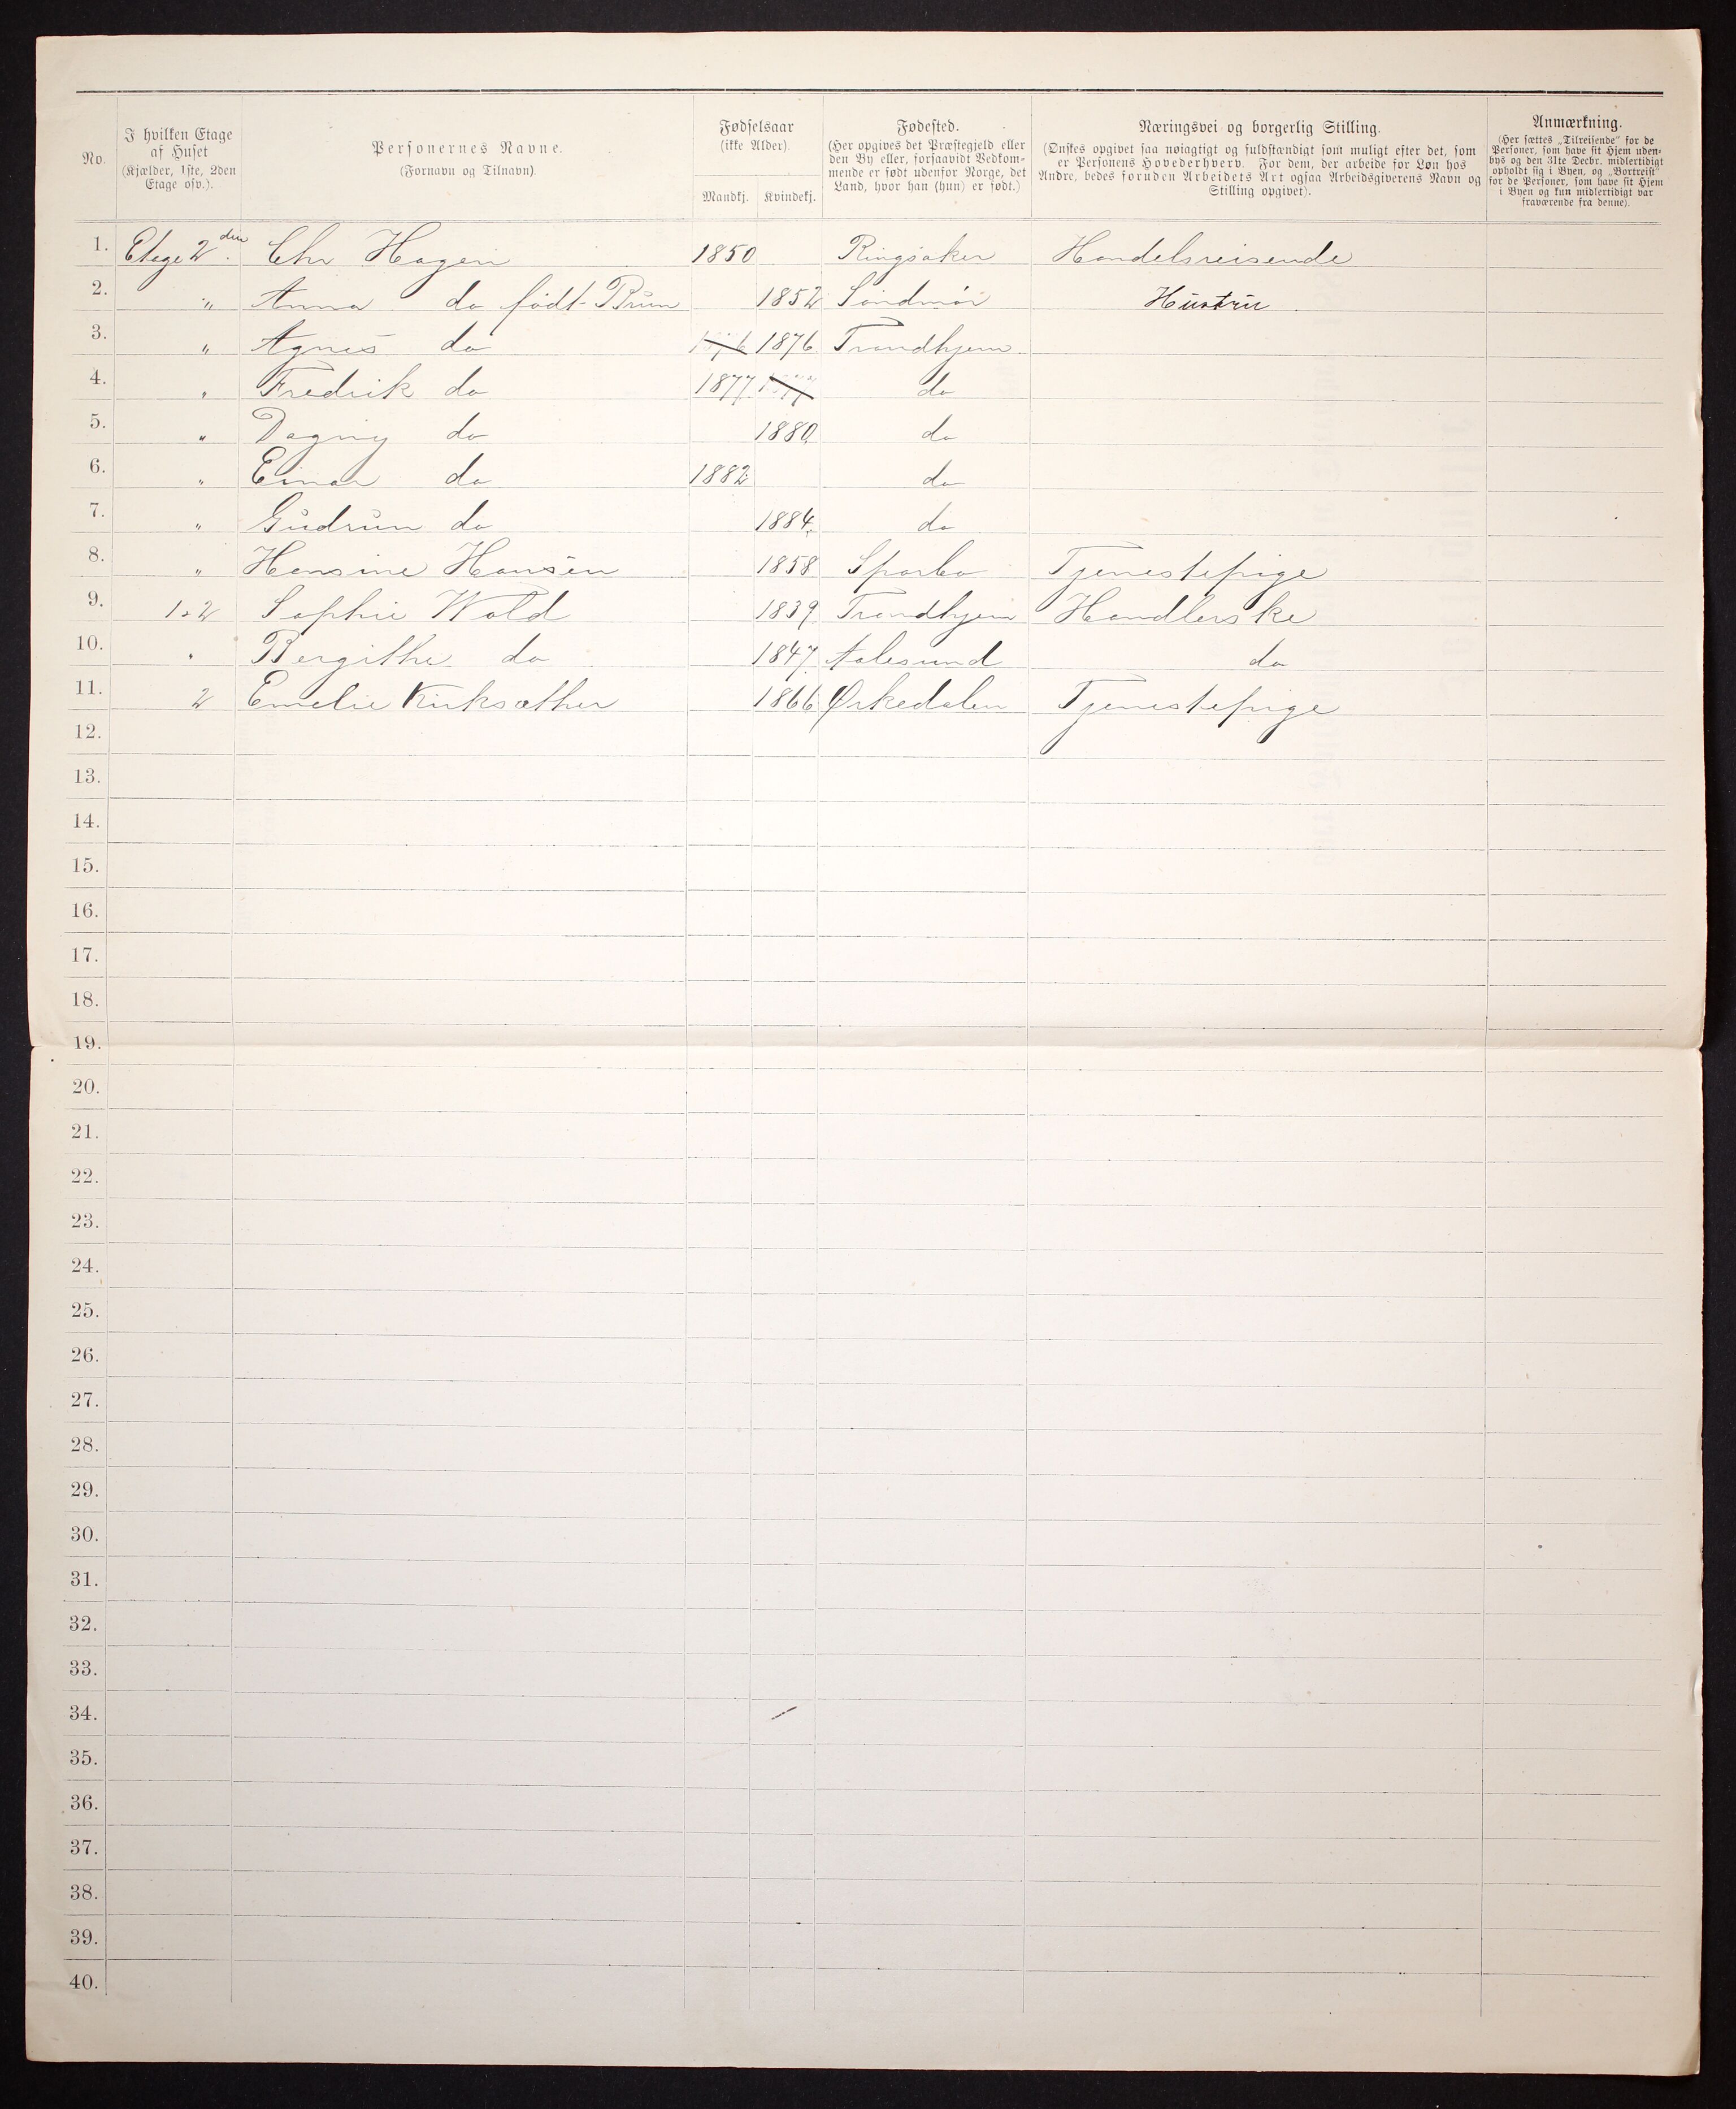 No.
I hvilken Etage
af Huset
(Kjælder, 1ste, 2den
Etage osv.).
Personernes Navne.
(Fornavn og Tilnavn).
Fødselsaar
(ikke Alder).
Mandkj. Kvindekj.
Fødested.
(Her opgives det Præstegjeld eller
den By eller, forsaavidt Vedkom-
mende er født udenfor Norge, det
Land, hvor han (hun) er født.)
Næringsvei og borgerlig Stilling.
(Ønskes opgivet saa nøiagtigt og fuldstændigt som muligt efter det, som
er Personens Hovederhverv. For dem, der arbeide for Løn hos
Andre, bedes foruden Arbeidets Art ogsaa Arbeidsgiverens Navn og
Stilling opgivet).
Anmærkning.
(Her sættes „Tilreisende" for de
Personer, som have sit Hjem uden-
bys og den 31te Decbr. midlertidigt
opholdt sig i Byen, og „Bortreist"
for de Personer, som have sit Hjem
i Byen og kun midlertidigt var
fraværende fra denne).
1. Etage 2den. Chr Hagen 1850 Ringsaker Handelsreisende
2. " Anna do født Brun 1852 Söndmör Hustru
3. " Agnes do 1876 1876 Trondhjem
4. " Fredrik do 1877 1877 do
5. " Dagny do 1880 do
6. " Einar do 1882 do
7. " Gudrun do 1884 do
8. " Hansine Hansen 1858 Sparbo Tjenestepige
9. 1 & 2 Sophie Wold 1839 Trondhjem Handlerske
10. " Bergithe do 1847 Aalesund do
11. 2 Emelie Kirksæther 1866 Ørkedalen Tjenestepige
12.
13.
14.
15.
16.
17.
18.
19.
20.
21.
22.
23.
24.
25.
26.
27.
28.
29.
30.
31.
32.
33.
34.
35.
36.
37.
38.
39.
40.